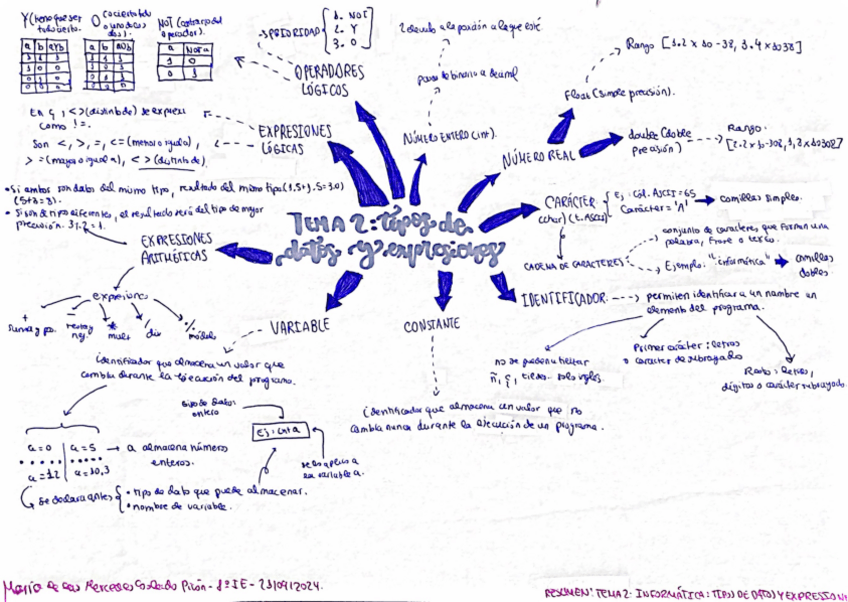 Y (tiene que ser todo cierto.
O (o cierto todo o uno de los dos).
NOT (contrario del operador).
a b aYb
a b aOb
a NOT a
1 0
0 1
→ PRIORIDAD
1. NOT
2. Y
3. O
OPERADORES
LÓGICOS
2 elevado a la posición a la que esté
paso de binario a decimal
NÚMERO ENTERO (int).
Rango [1.2 x 10 -38, 3.4 x 1038]
Float (simple precisión).
NÚMERO REAL
double (doble
precisión)
Rango.
[2.2 x 10-308, 1,8 x 10308]
En ç, <> (distinto de) se expresa
como !=.
Son <, >, =, <= (menor o igual),
>= (mayor o igual a), <> (distinto de).
EXPRESIONES
LÓGICAS
• Si ambos son datos del mismo tipo, resultado del mismo tipo (1,5+1,5=3.0)
(5+3=8).
• Si son de tipo diferentes, el resultado será del tipo de mayor
precisión. 3
EXPRESIONES
ARITMÉTICAS
TEMA 2: tipos de
datos y expresiones
CARÁCTER
(char) (t. Ascii)
Ej: Cód. ASCII = 65
Carácter = 'A'
comillas simples.
CADENA DE CARACTERES
conjunto de caracteres que forman una
palabra, frase o texto.
Ejemplo: "informática"
comillas
dobles.
IDENTIFICADOR
permiten identificar a un nombre un
elemento del programa.
no se pueden utilizar
ñ, ç, tildes. solo inglés.
Primer carácter: letras
o carácter de subrayado
Resto: letras,
dígitos o carácter subrayado.
expresiones
+
suma y pos.
-
resta y neg.
*
mult
/
div
%
módulo
VARIABLE
identificador que almacena un valor que
cambia durante la ejecución del programa.
CONSTANTE
identificador que almacena un valor que no
cambia nunca durante la ejecución de un programa.
tipo de datos
entero
Ej: int a
se les aplica a
la variable a.
a=0 a=5
a=12 a=10,3
→ a almacena números
enteros.
Se declara antes
• tipo de dato que puede almacenar.
• nombre de variable.
María de las Mercedes Collado Pinón - 1º IE - 23/09/2024.
RESUMEN: TEMA 2: INFORMÁTICA: TIPOS DE DATOS Y EXPRESION